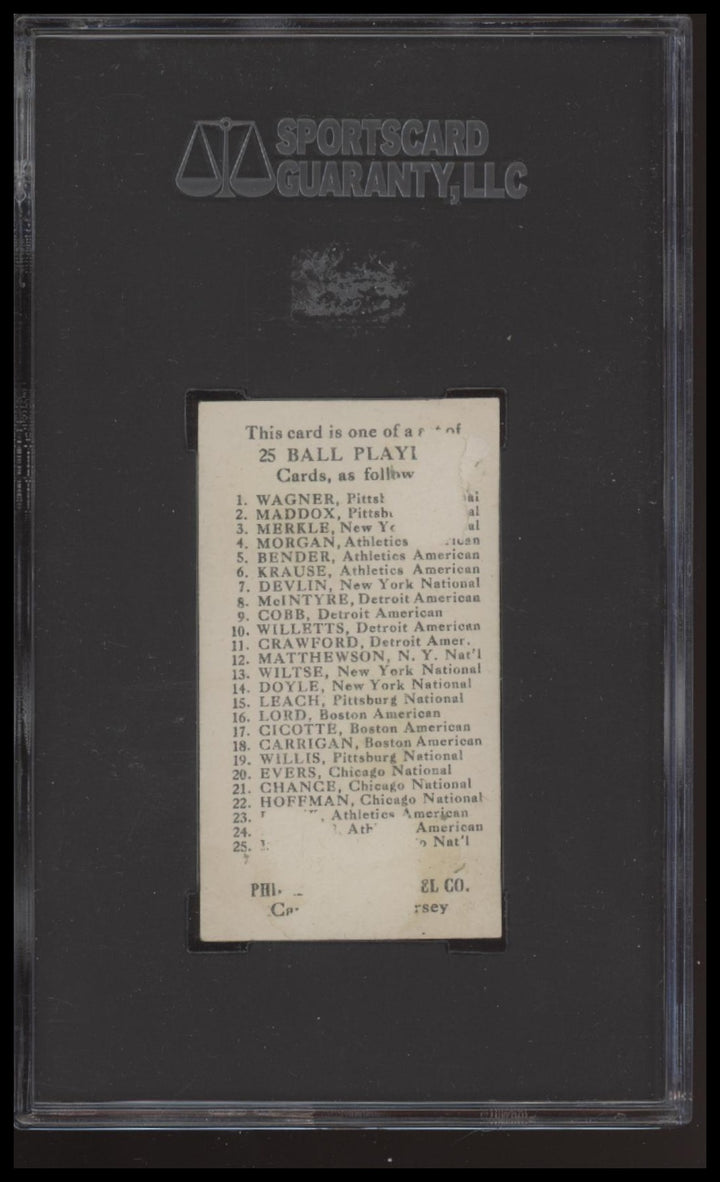 SPORTSCARD
GUARANTY, LLC
This card is one of a of
25 BALL
Cards, as follow
1. WAGNER,
2. MADDOX,
3. MERKLE, New
4. MORGAN, Athletics
5. BENDER, Athletics American
6. KRAUSE, Athletics American
7. DEVLIN, New York National
8. McINTYRE, Detroit American
9. COBB, Detroit American
10. WILLETTS, Detroit American
11. CRAWFORD, Detroit Amer.
12. MATTHEWSON, N. Y. Nat'l
13. WILTSE, New York National
14. DOYLE, New York National
15. LEACH, Pittsburg National
16. LORD, Boston American
17. CICOTTE, Boston American
18. CARRIGAN, Boston American
19. WILLIS, Pittsburg National
20. EVERS, Chicago National
21. CHANCE, Chicago National
22. HOFFMAN, Chicago National
23. , Athletics American
24. American
25. Nat'l
CO.